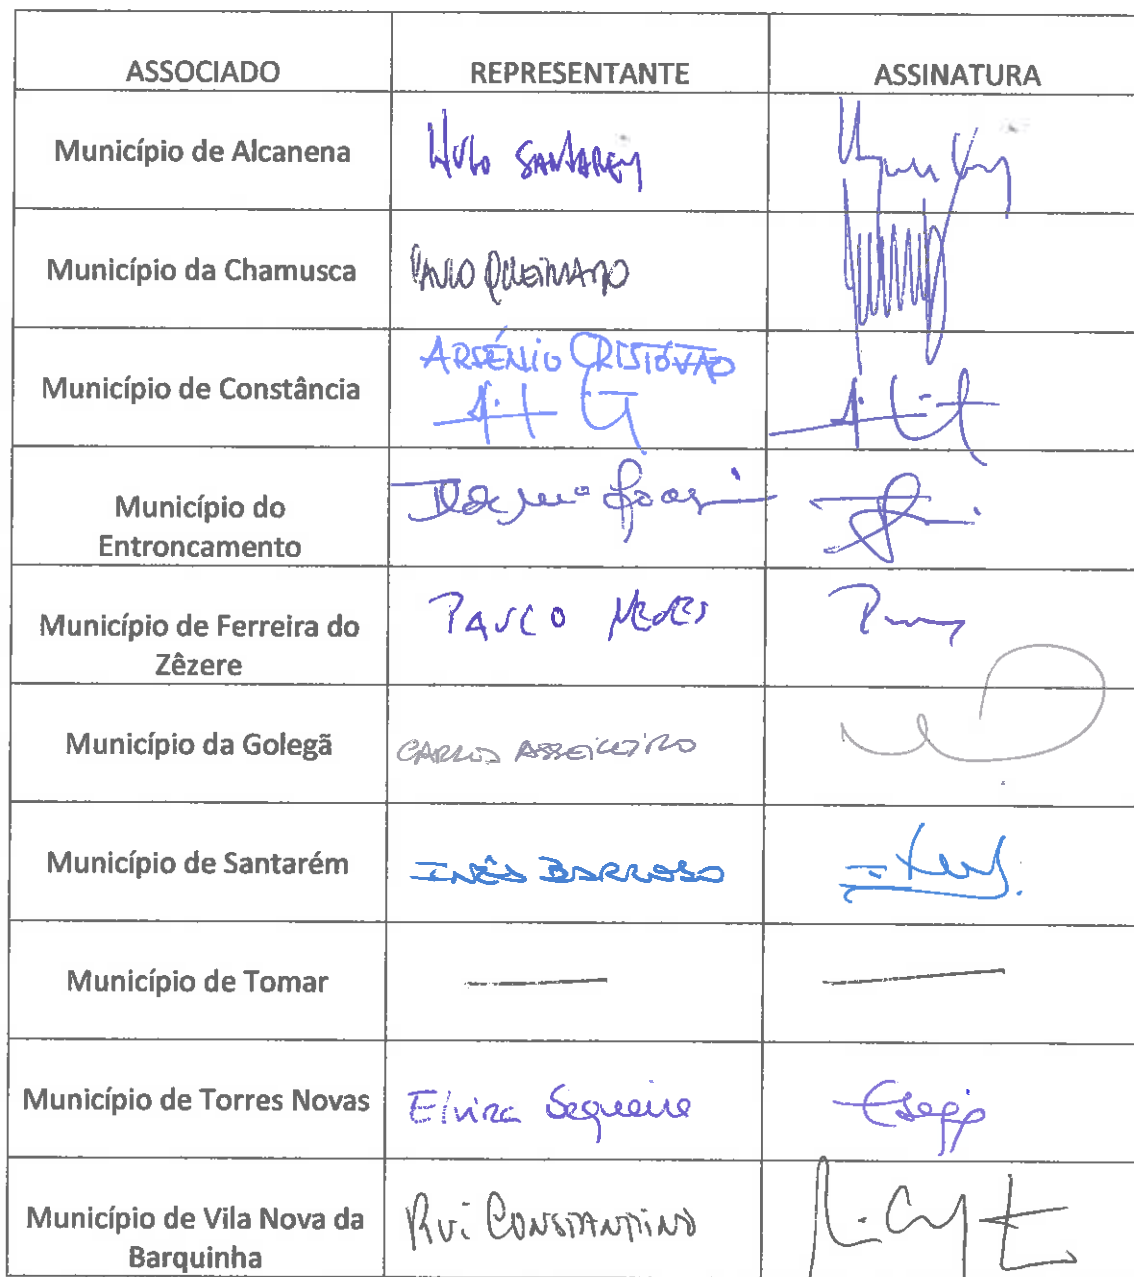 ASSOCIADO REPRESENTANTE ASSINATURA
Município de Alcanena HUGO SANTAREM
Município da Chamusca PAULO QUEIMADO
Município de Constância ARSÉNIO CRISTÓVÃO
Município do
Entroncamento
Município de Ferreira do PAULO NEVES
Zêzere
Município da Golegã CARLOS ASSEICEIRO
Município de Santarém INÊS BARROSO
Município de Tomar
Município de Torres Novas Elvira Sequeira
Município de Vila Nova da RUI CONSTANTINO
Barquinha